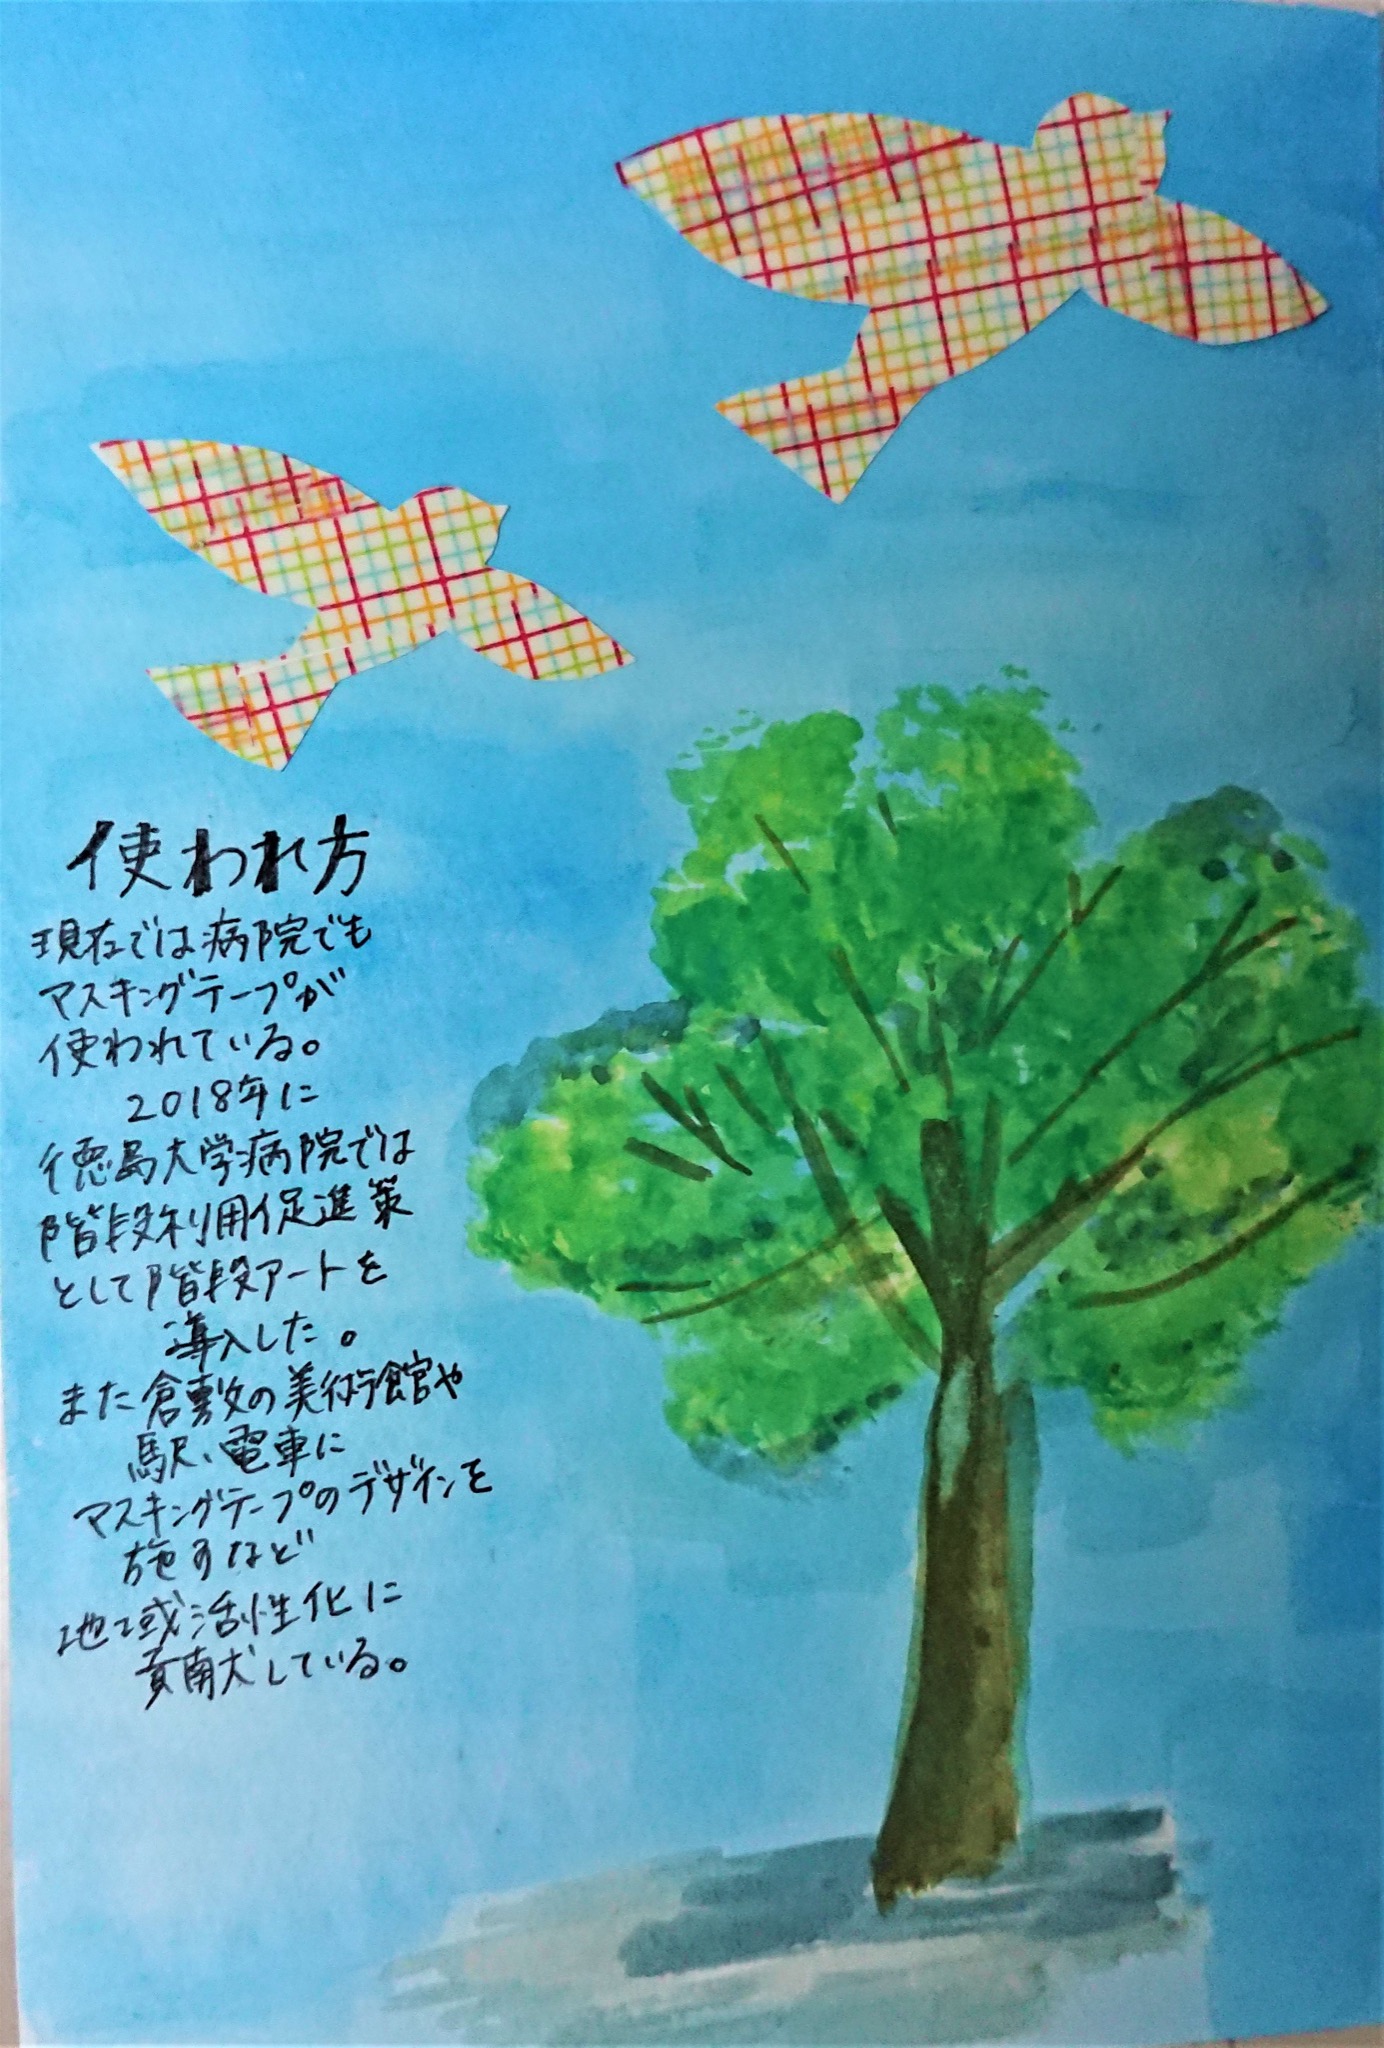 使われ方
現在では病院でも
マスキングテープが
使われている。
2018年に
徳島大学病院では
階段利用促進策
として階段アートを
導入した。
また倉敷の美術館や
駅、電車に
マスキングテープのデザインを
施すなど
地域活性化に
貢献している。